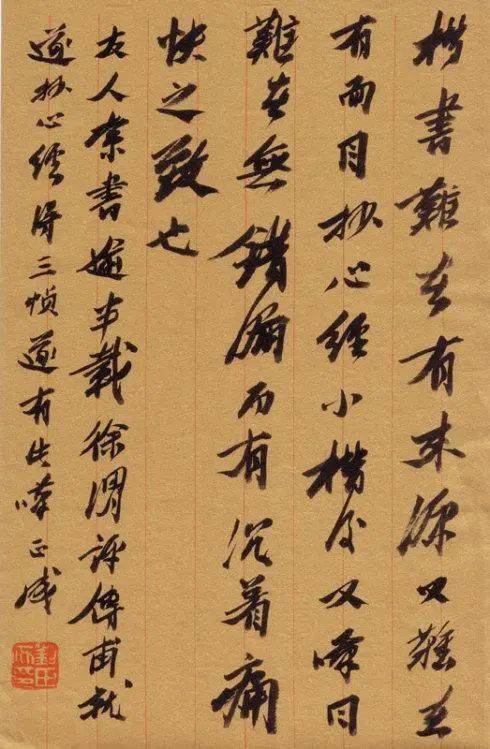 楷書難在有来源又難在
有面目抄心經小楷後又嘆曰
難在無錯漏而有沉着痛
快之致也
友人索書逾半載徐渭評傳甫就
遂抄心經得三幀遂有此嘆正成